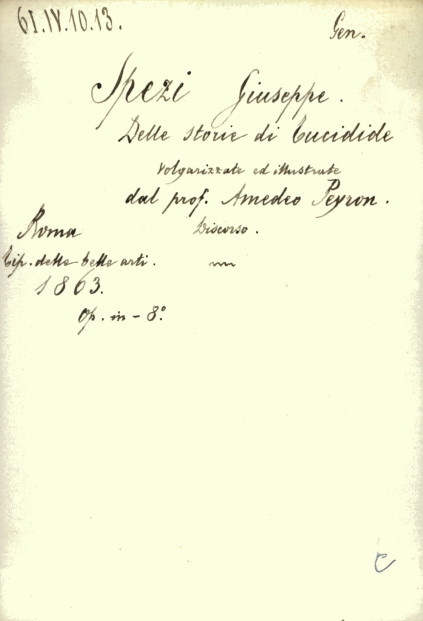 61.IV.10.13. Gen.
Spezi Giuseppe.
Delle storie di Tucidide
volgarizzate ed illustrate
dal prof. Amedeo Peyron.
Roma Discorso.
Tip. delle belle arti.
1863.
Op. in-8º.
C